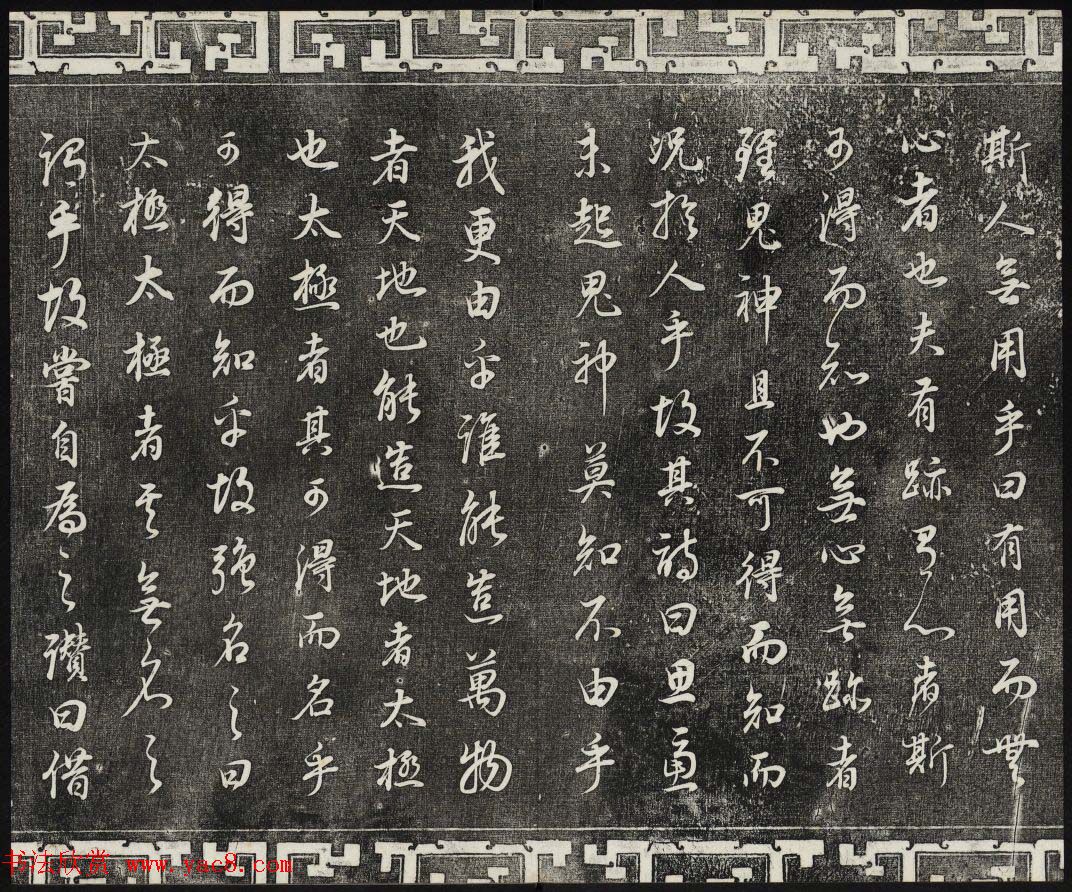 斯人無用乎曰有用而無
心者也夫有跡有心者斯
可得而知也無心無跡者
雖鬼神且不可得而知而
況於人乎故其詩曰思慮
未起鬼神莫知不由乎
我更由乎誰能造萬物
者天地也能造天地者太極
也太極者其可得而名乎
可得而知乎故強名之曰
太極太極者其無名之
謂乎故嘗自為之讚曰借
书法欣赏 www.yac8.com